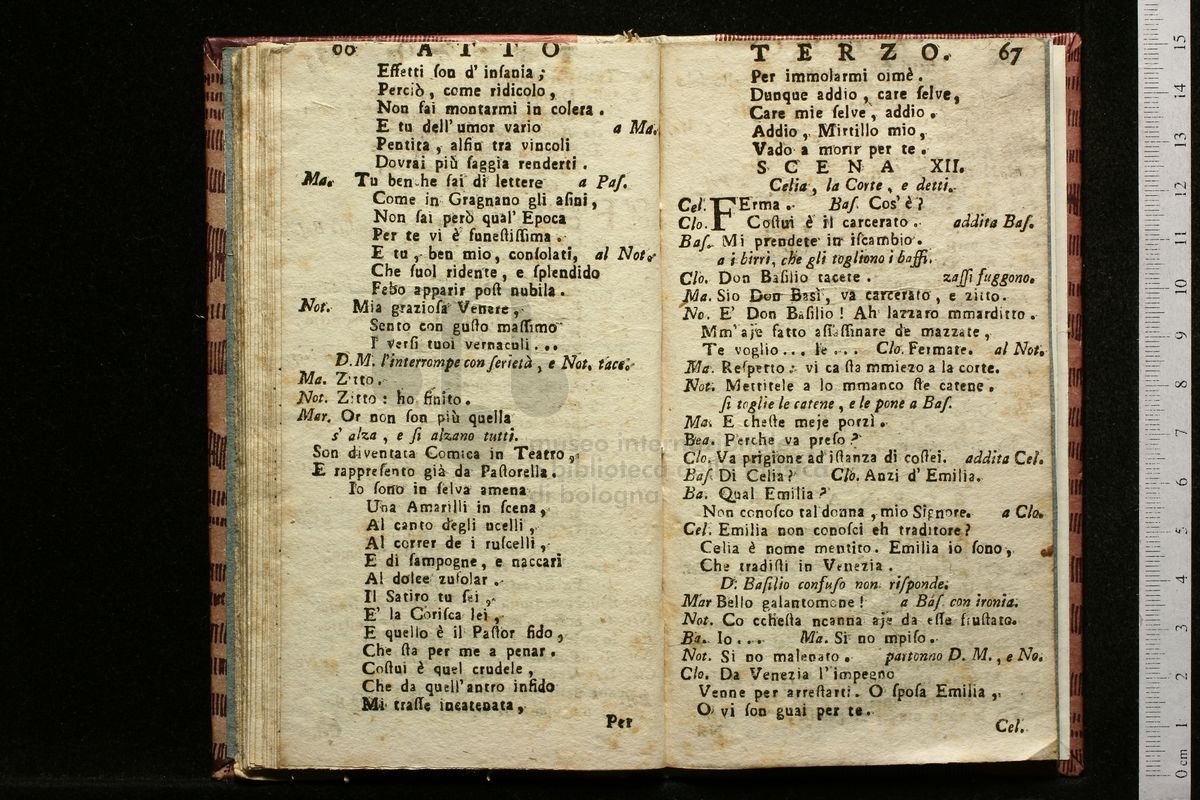 66 ATTO
Effetti ſon d' inſania;
Perciò, come ridicolo,
Non fai montarmi in colera.
E tu dell'umor vario a Ma.
Pentita, alfin tra vincoli
Dovrai più ſaggia renderti.
Ma. Tu benche ſai di lettere a Paſ.
Come in Gragnano gli aſini,
Non ſai però qual' Epoca
Per te vi è funeſtiſſima.
E tu, ben mio, conſolati, al Not.
Che ſuol ridente, e ſplendido
Febo apparir poſt nubila.
Not. Mia grazioſa Venere,
Sento con guſto maſſimo
I' verſi tuoi vernaculi...
D.M. l'interrompe con ſerietà, e Not. tace.
Ma. Zitto.
Not. Zitto: ho finito.
Mar. Or non ſon più quella
s' alza, e ſi alzano tutti.
Son diventata Comica in Teatro,
E rappreſento già da Paſtorella.
Io ſono in ſelva amena
Una Amarilli in ſcena,
Al canto degli ucelli,
Al correr de i ruſcelli,
E di ſampogne, e naccari
Al dolce zuſolar.
Il Satiro tu ſei,
E' la Coriſca lei,
E quello è il Paſtor fido,
Che ſta per me a penar.
Coſtui è quel crudele,
Che da quell'antro infido
Mi traſſe incatenata,
Per
TERZO. 67
Per immolarmi oimè.
Dunque addio, care ſelve,
Care mie ſelve, addio.
Addio, Mirtillo mio,
Vado a morir per te.
SCENA XII.
Celia, la Corte, e detti.
Cel. FErma. Baſ. Cos' è?
Clo. Coſtui è il carcerato. addita Baſ.
Baſ. Mi prendete in iſcambio.
a i birri, che gli togliono i baffi.
Clo. Don Baſilio tacete. zaffi fuggono.
Ma. Sio Don Basì, va carcerato, e zitto.
No. E' Don Baſilio! Ah lazzaro mmarditto.
Mm'aje fatto aſſaſſinare de mazzate,
Te voglio... ſe... Clo. Fermate. al Not.
Ma. Reſpetto: vi ca ſta mmiezo a la corte.
Not. Mettitele a lo mmanco ſte catene.
ſi toglie le catene, e le pone a Baſ.
Ma. E cheſte meje porzì.
Bea. Perche va preſo?
Clo. Va prigione ad iſtanza di coſtei. addita Cel.
Baſ. Di Celia? Clo. Anzi d' Emilia.
Ba. Qual Emilia?
Non conoſco tal donna, mio Signore. a Clo.
Cel. Emilia non conoſci eh traditore?
Celia è nome mentito. Emilia io ſono,
Che tradiſti in Venezia.
D. Baſilio confuſo non riſponde.
Mar Bello galantomene! a Baſ. con ironia.
Not. Co ccheſta ncanna aje da eſſe ſiuſtato.
Ba. Io... Ma. Si no mpiſo.
Not. Si no malenato. partonno D. M., e No.
Clo. Da Venezia l'impegno
Venne per arreſtarti. O ſpoſa Emilia,
O vi ſon guai per te.
Cel.
museo
biblioteca
di bologna
0 cm 1 2 3 4 5 6 7 8 9 10 11 12 13 14 15